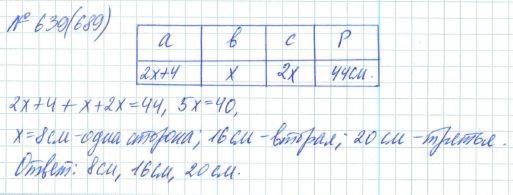 № 639(689)
a в c P
2x+4 x 2x 44см.
2x+4+x+2x=44, 5x=40,
x=8см-одна сторона; 16см-вторая; 20см-третья.
Ответ: 8см, 16см, 20см.